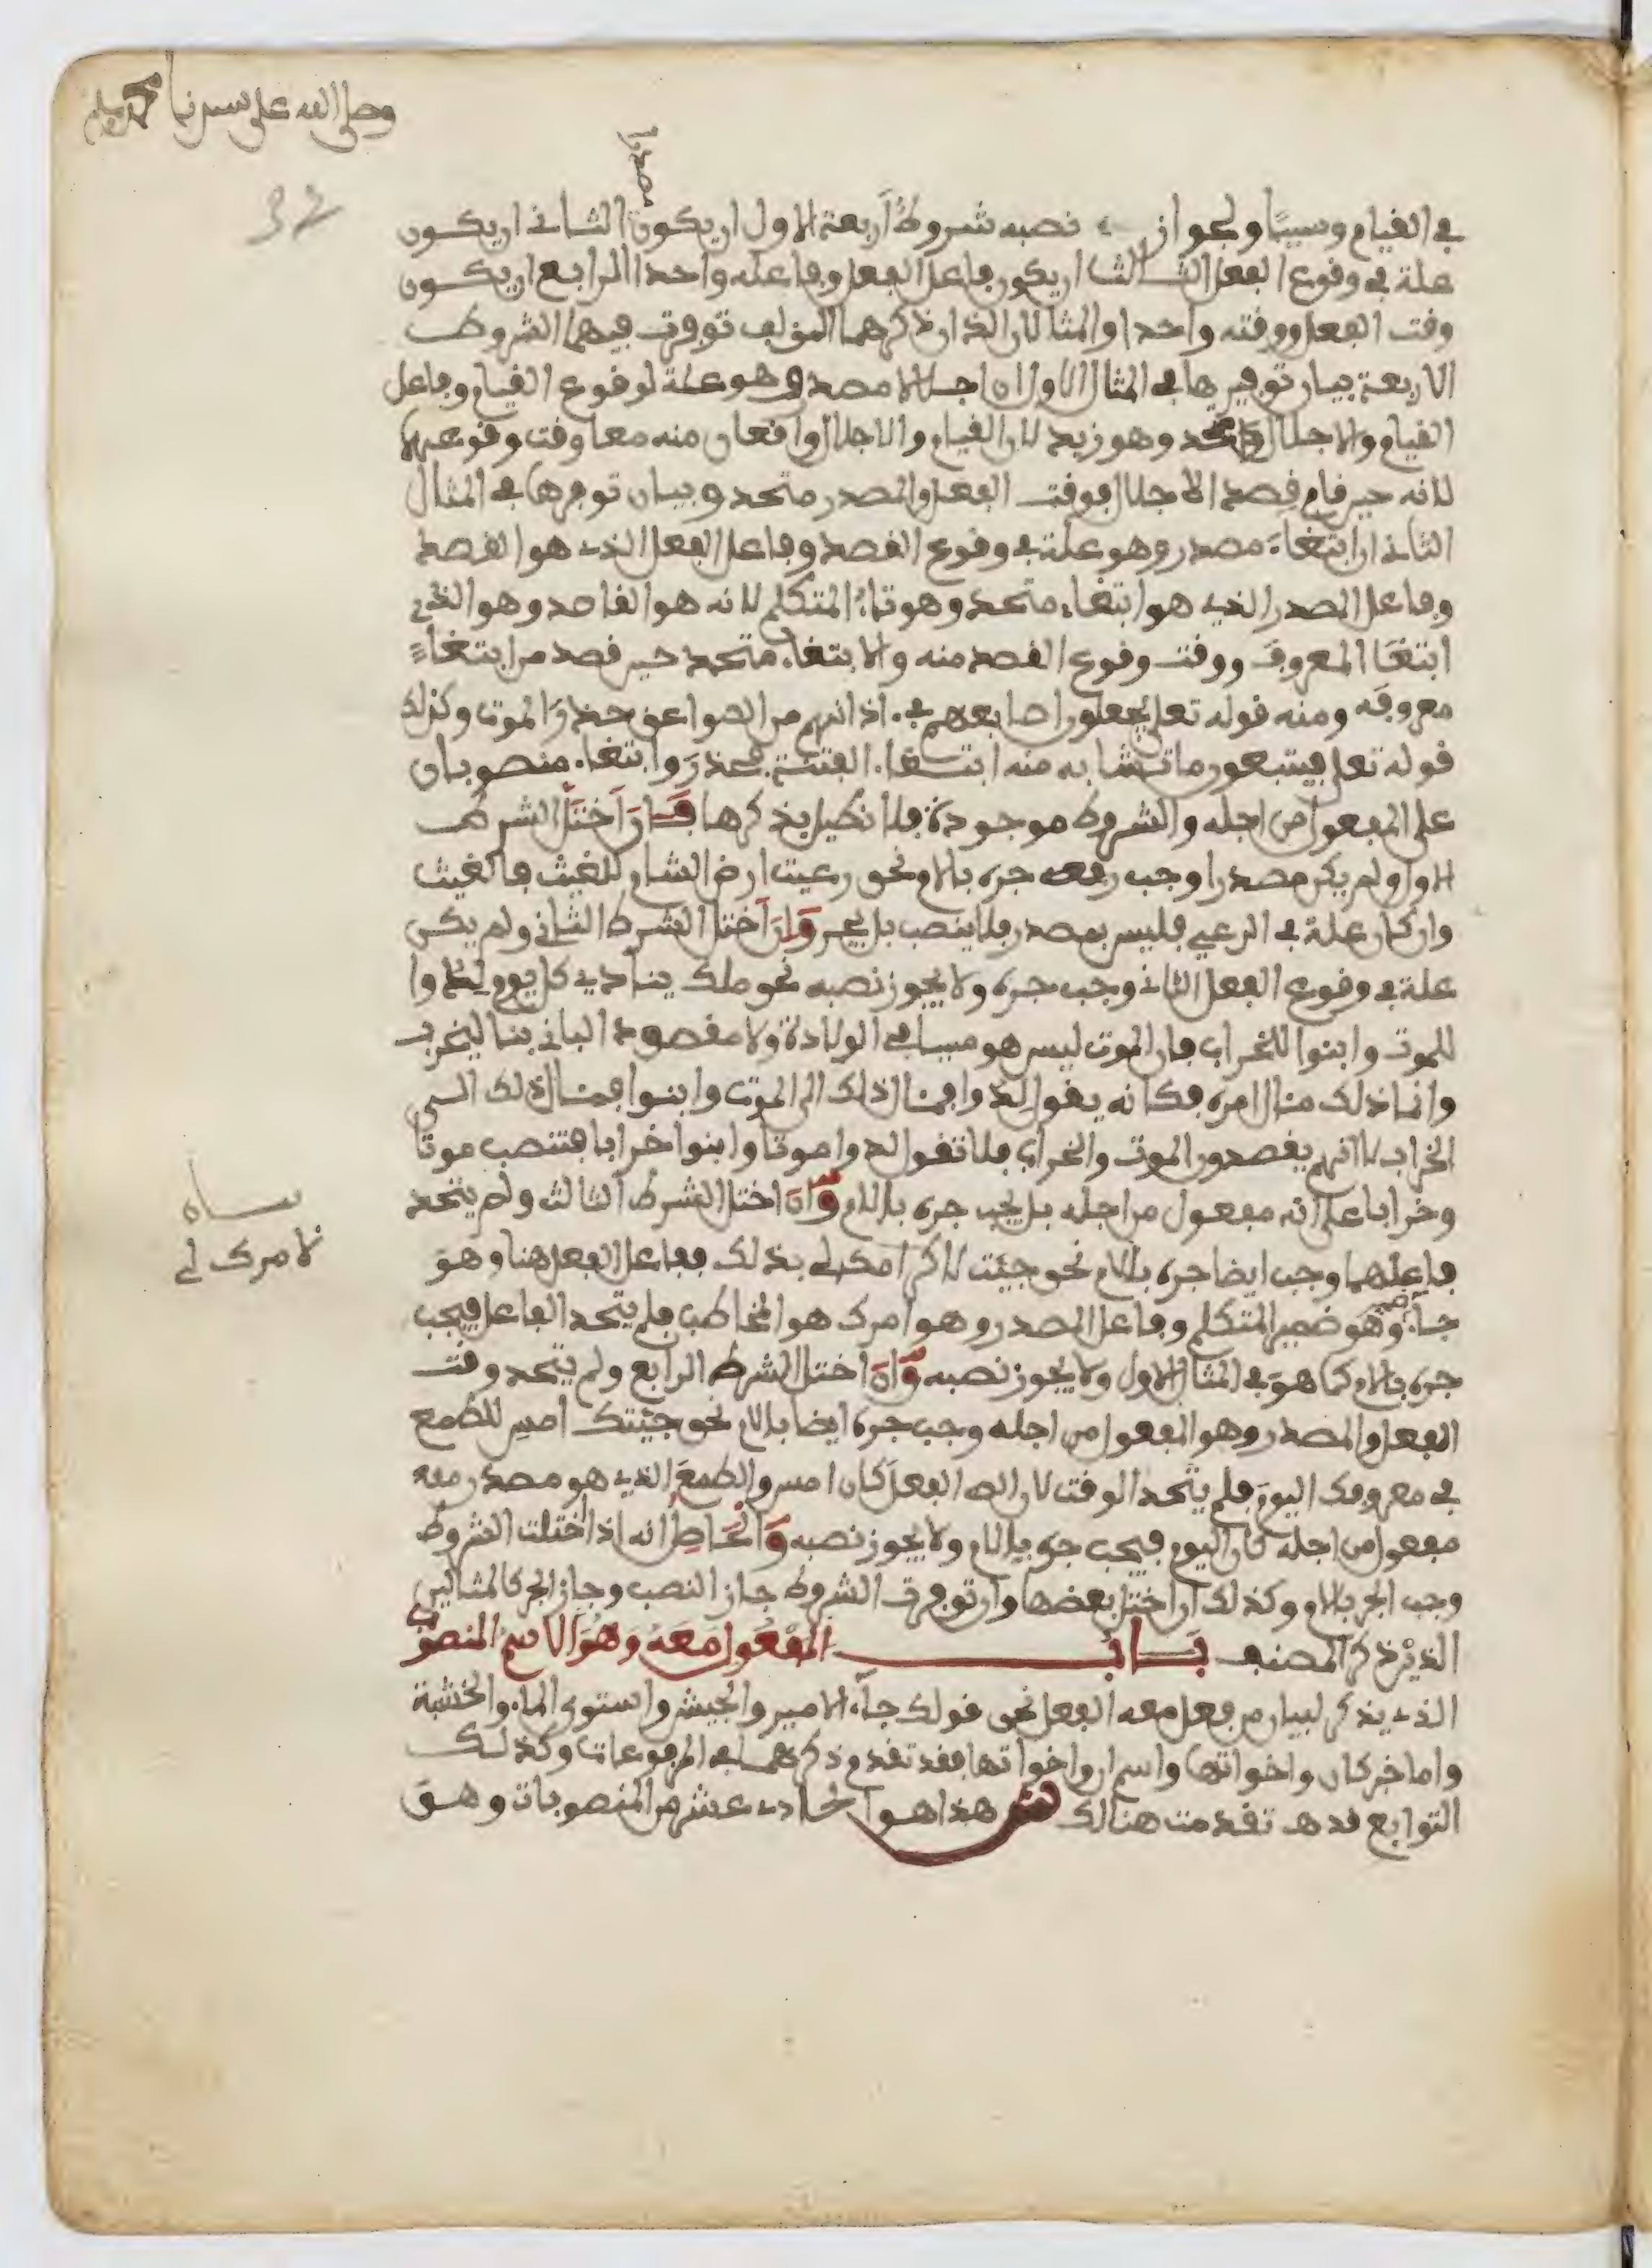 وصلى الله على سيدنا محمد وسلم
مصدرا
32
في القيام وسببا ولجواز نصبه شروط أربعة الاول ان يكون الثاني ان يكون
علة في وقوع الفعل الثالث ان يكون فاعل الفعل وفاعله واحدا الرابع ان يكون
وقت الفعل ووقته واحدا والمثالان الذان ذكرهما المؤلف توفرت فيهما الشروط
الاربعة بيان توفيرها في المثال الاول ان اجلالا مصدر وهو علة لوقوع القيام وفاعل
القيام والاجلال واحد وهو زيد لان القيام والاجلال واقعان منه معا وقت وقوعهما
لانه حين قام قصد الاجلال فوقت الفعل والمصدر متحد وبيان توفرها في المثال
الثاني ان ابتغاء مصدر وهو علة في وقوع القصد وفاعل الفعل الذي هو القصد
وفاعل المصدر الذي هو ابتغاء متحد وهو تاء المتكلم لانه هو القاصد وهو الذي
ابتغا المعروف ووقت وقوع القصد منه والابتغاء متحد حين قصد من ابتغاء
معروفه ومنه قوله تعلى يجعلون اصابعهم في اذانهم من الصواعق حذر الموت وكذلك
قوله تعلى فيتبعون ما تشابه منه ابتغاء الفتنة فحذر وابتغاء منصوبان
على المفعول من اجله والشروط موجودة فلا نطيل بذكرها فإن اختل الشرط
الاول ولم يكن مصدرا وجب جره بالام نحو رعيت ارض الشام للغيث فالغيث
وان كان علة في الرعي فليس بمصدر فلا ينصب بل يجر وإن اختل الشرط الثاني ولم يكن
علة في وقوع الفعل الثاني وجب جره ولا يجوز نصبه نحو ملك ينادي كل يوم لدوا
للموت وابنوا للخراب فان الموت ليس هو سببا في الولادة ولا مقصود الباني بنا ليخرب
وانما ذلك مئال امره فكانه يقول لدوا فمئال ذلك الى الموت وابنوا فمئال ذلك الى
الخراب لا انهم يقصدون الموت والخراب فلا تقول لدوا موتا وابنوا خرابا فتنصب موتا
وخرابا على انه مفعول من اجله بل يجب جره بالام وإن اختل الشرط الثالث ولم يتحد
فاعلهما وجب ايضا جره بالام نحو جئت بذلك ففاعل الفعل هنا وهو
جاء هو ضمير المتكلم وفاعل المصدر وهو امرك هو المخاطب فلم يتحد الفاعل فيجب
جره بالام كما هو في المثال الاول ولا يجوز نصبه وإن اختل الشرط الرابع ولم يتحد وقت
الفعل والمصدر وهو المفعول من اجله وجب جره ايضا بالام نحو جئتك امس للطمع
في معروفك اليوم فلم يتحد الوقت لان الفعل كان امس والطمع الذي هو مصدر معه
مفعول من اجله كان اليوم فيجب جره بالام ولا يجوز نصبه والحاصل انه اذا اختلت الشروط
وجب الجر بالام وكذلك ان اختل بعضها وان توفرت الشروط جاز النصب وجاز الجر كالمثالين
الذين ذكر المصنف باب المفعول معه وهو الاسم المنصوب
الذي يذكر لبيان من فعل معه الفعل نحو قولك جاء الامير والجيش واستوى الماء والخشبة
واما خبر كان واخواتها واسم ان واخواتها فقد تقدم ذكرهما في المرفوعات وكذلك
التوابع فقد تقدمت هنالك هذا هو الحادي عشر من المنصوبات وهو
بيان
لامرك لي